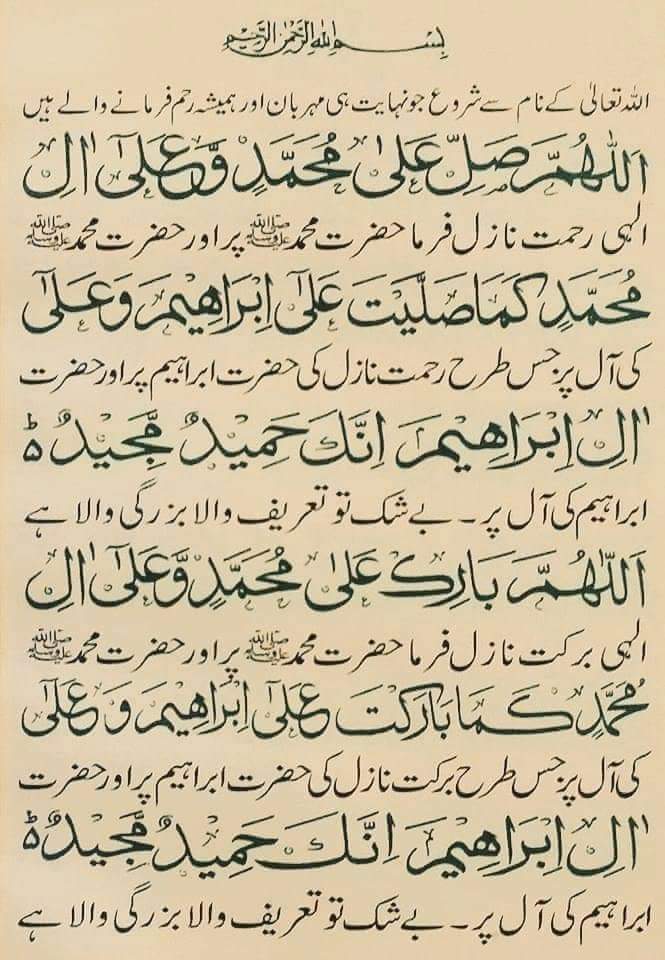 بِسْمِ اللهِ الرَّحْمٰنِ الرَّحِيْمِ
اللہ تعالیٰ کے نام سے شروع جو نہایت ہی مہربان اور ہمیشہ رحم فرمانے والے ہیں
اَللّٰهُمَّ صَلِّ عَلٰى مُحَمَّدٍ وَّعَلٰٓى اٰلِ
الٰہی رحمت نازل فرما حضرت محمد ﷺ پر اور حضرت محمد ﷺ
مُحَمَّدٍ كَمَا صَلَّيْتَ عَلٰٓى اِبْرَاهِيْمَ وَعَلٰٓى
کی آل پر جس طرح رحمت نازل کی حضرت ابراہیم پر اور حضرت
اٰلِ اِبْرَاهِيْمَ اِنَّكَ حَمِيْدٌ مَّجِيْدٌ ؕ
ابراہیم کی آل پر ۔ بے شک تو تعریف والا بزرگی والا ہے
اَللّٰهُمَّ بَارِكْ عَلٰى مُحَمَّدٍ وَّعَلٰٓى اٰلِ
الٰہی برکت نازل فرما حضرت محمد ﷺ پر اور حضرت محمد ﷺ
مُحَمَّدٍ كَمَا بَارَكْتَ عَلٰٓى اِبْرَاهِيْمَ وَعَلٰٓى
کی آل پر جس طرح برکت نازل کی حضرت ابراہیم پر اور حضرت
اٰلِ اِبْرَاهِيْمَ اِنَّكَ حَمِيْدٌ مَّجِيْدٌ ؕ
ابراہیم کی آل پر ۔ بے شک تو تعریف والا بزرگی والا ہے